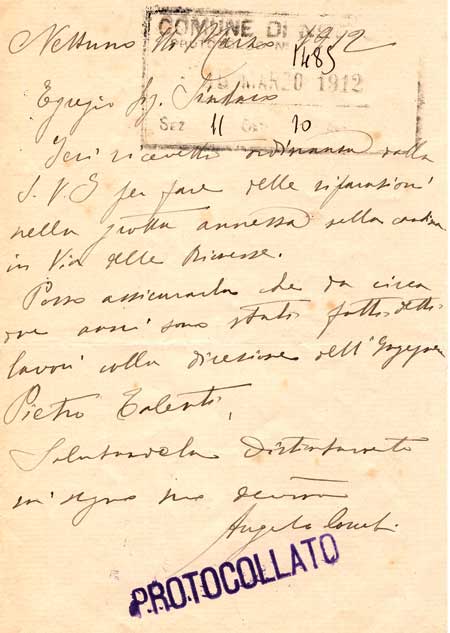 COMUNE DI
Nettuno li Marzo 1912
1485
MARZO 1912
Egregio Sig. Sindaco
Sez 11 10
Ieri ricevetti ordinanza dalla
S. V. S per fare delle riparazioni
nella grotta annessa nella cantina
in Via delle
Posso assicurarla che da circa
due anni sono stati fatti detti
lavori colla direzione dell'
Pietro Talenti,
Salutandola distintamente
mi segno suo
Angelo
PROTOCOLLATO